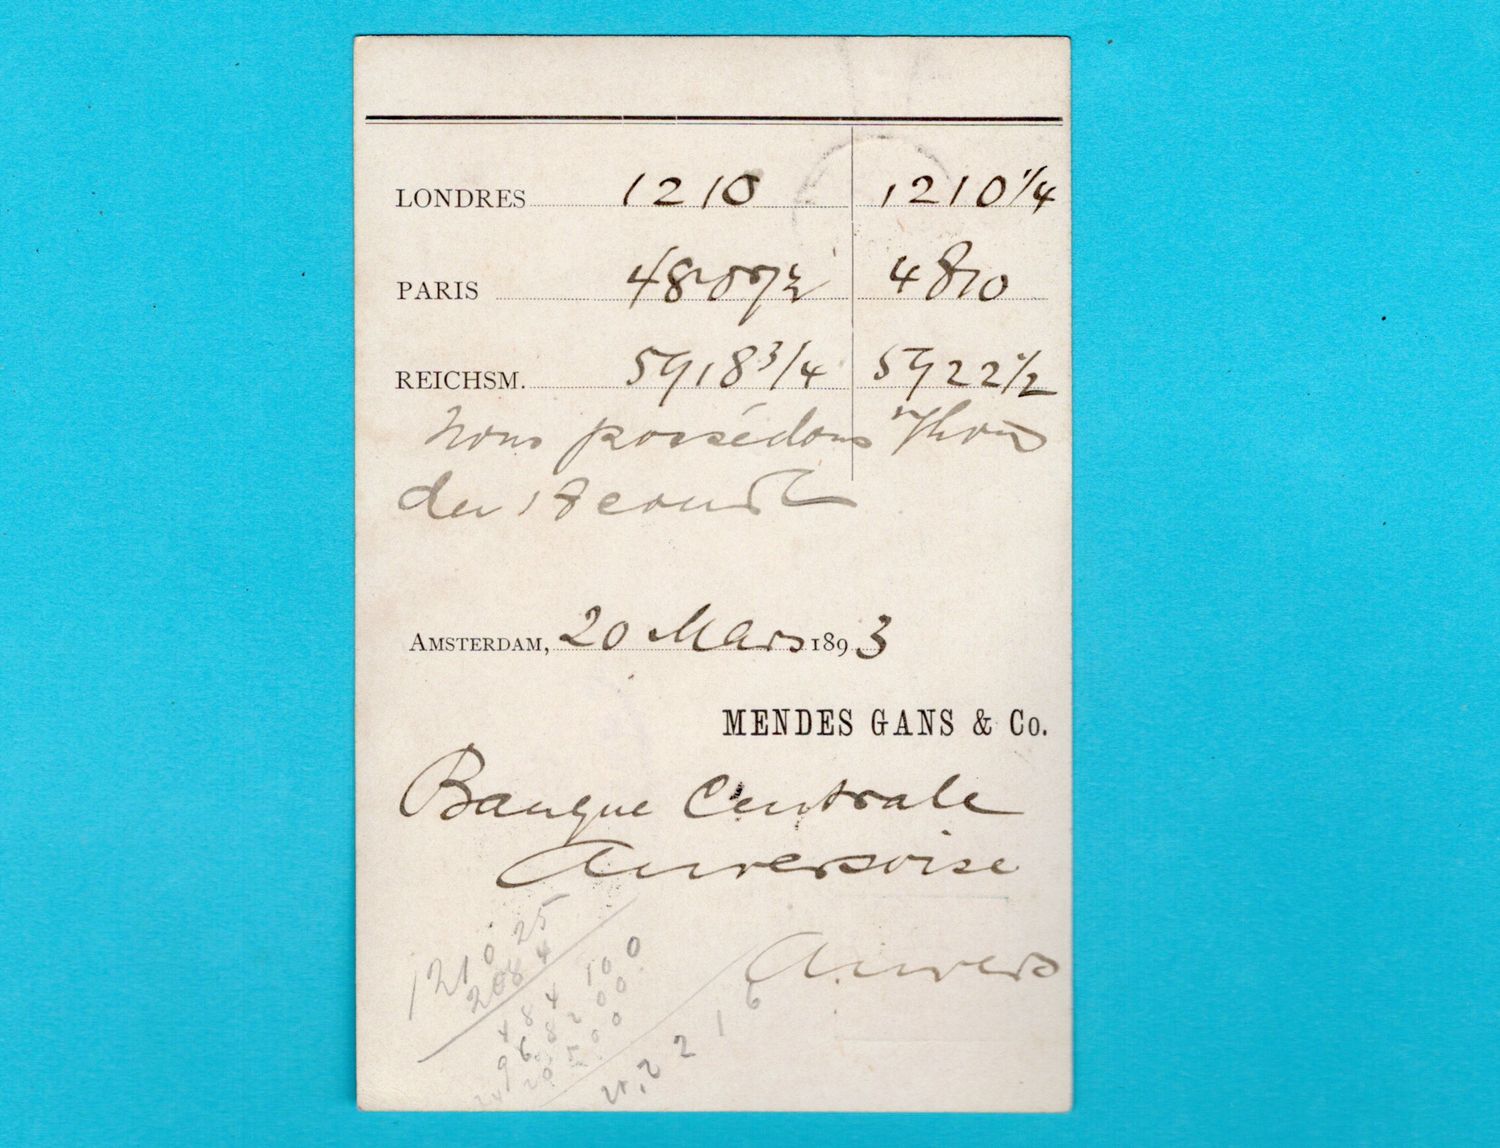 LONDRES 1210 1210 1/4
PARIS 4807 1/2 4810
REICHSM. 5918 3/4 5922 1/2
Nous possédons
AMSTERDAM, 20 Mars 1893
MENDES GANS & Co.
Banque Centrale
Anversoise
Anvers
1210 25
208 4
484 100
968200